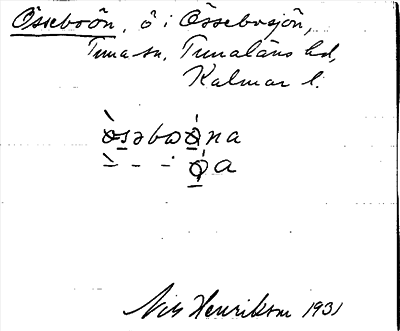 Össeboön, ö i Össebosjön,
Tuna sn, Tunaläns hd,
Kalmar l.
òsəbωȯ́na
Nils Henrikson 1931